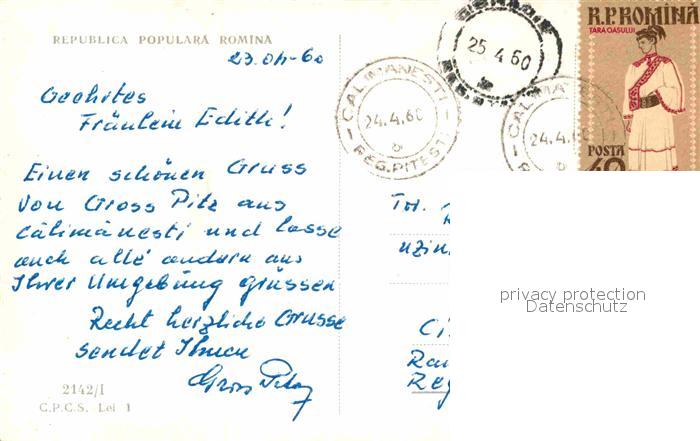 REPUBLICA POPULARĂ ROMÎNĂ
23.04.60
Geehrtes
Fräulein Edith!
Einen schönen Gruss
von Gross Pitz aus
călimănesti und lasse
auch alle andern aus
Ihrer Umgebung grüssen
Recht herzliche Grüsse
sendet Ihnen
Gross
2142/I
C.P.C.S. Lei 1
25.4.60
CALIMANESTI
24.4.60
REG. PITESTI
CALIMA
24.4.60
R.P. ROMÎNĂ
ȚARA OAȘULUI
POSTA
40
Tov.
uzin
Ci
Rai
Reg
privacy protection
Datenschutz